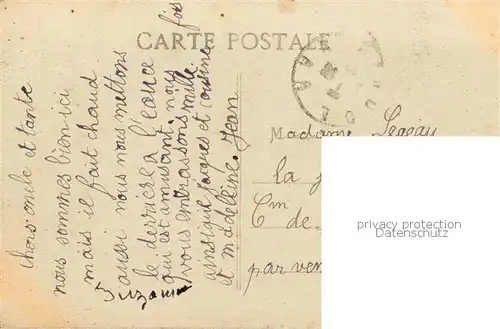 CARTE POSTALE
chers oncle et tante
nous sommes bien ici
mais il fait chaud
aussi nous nous mettons
le derrière a l'eau ce
qui est amusant. nous
vous embrassons mille fois
ainsi que Jacques et cousine
et madeleine. Jean
Suzanne
Madame
la
Cm
de
par
privacy protection
Datenschutz